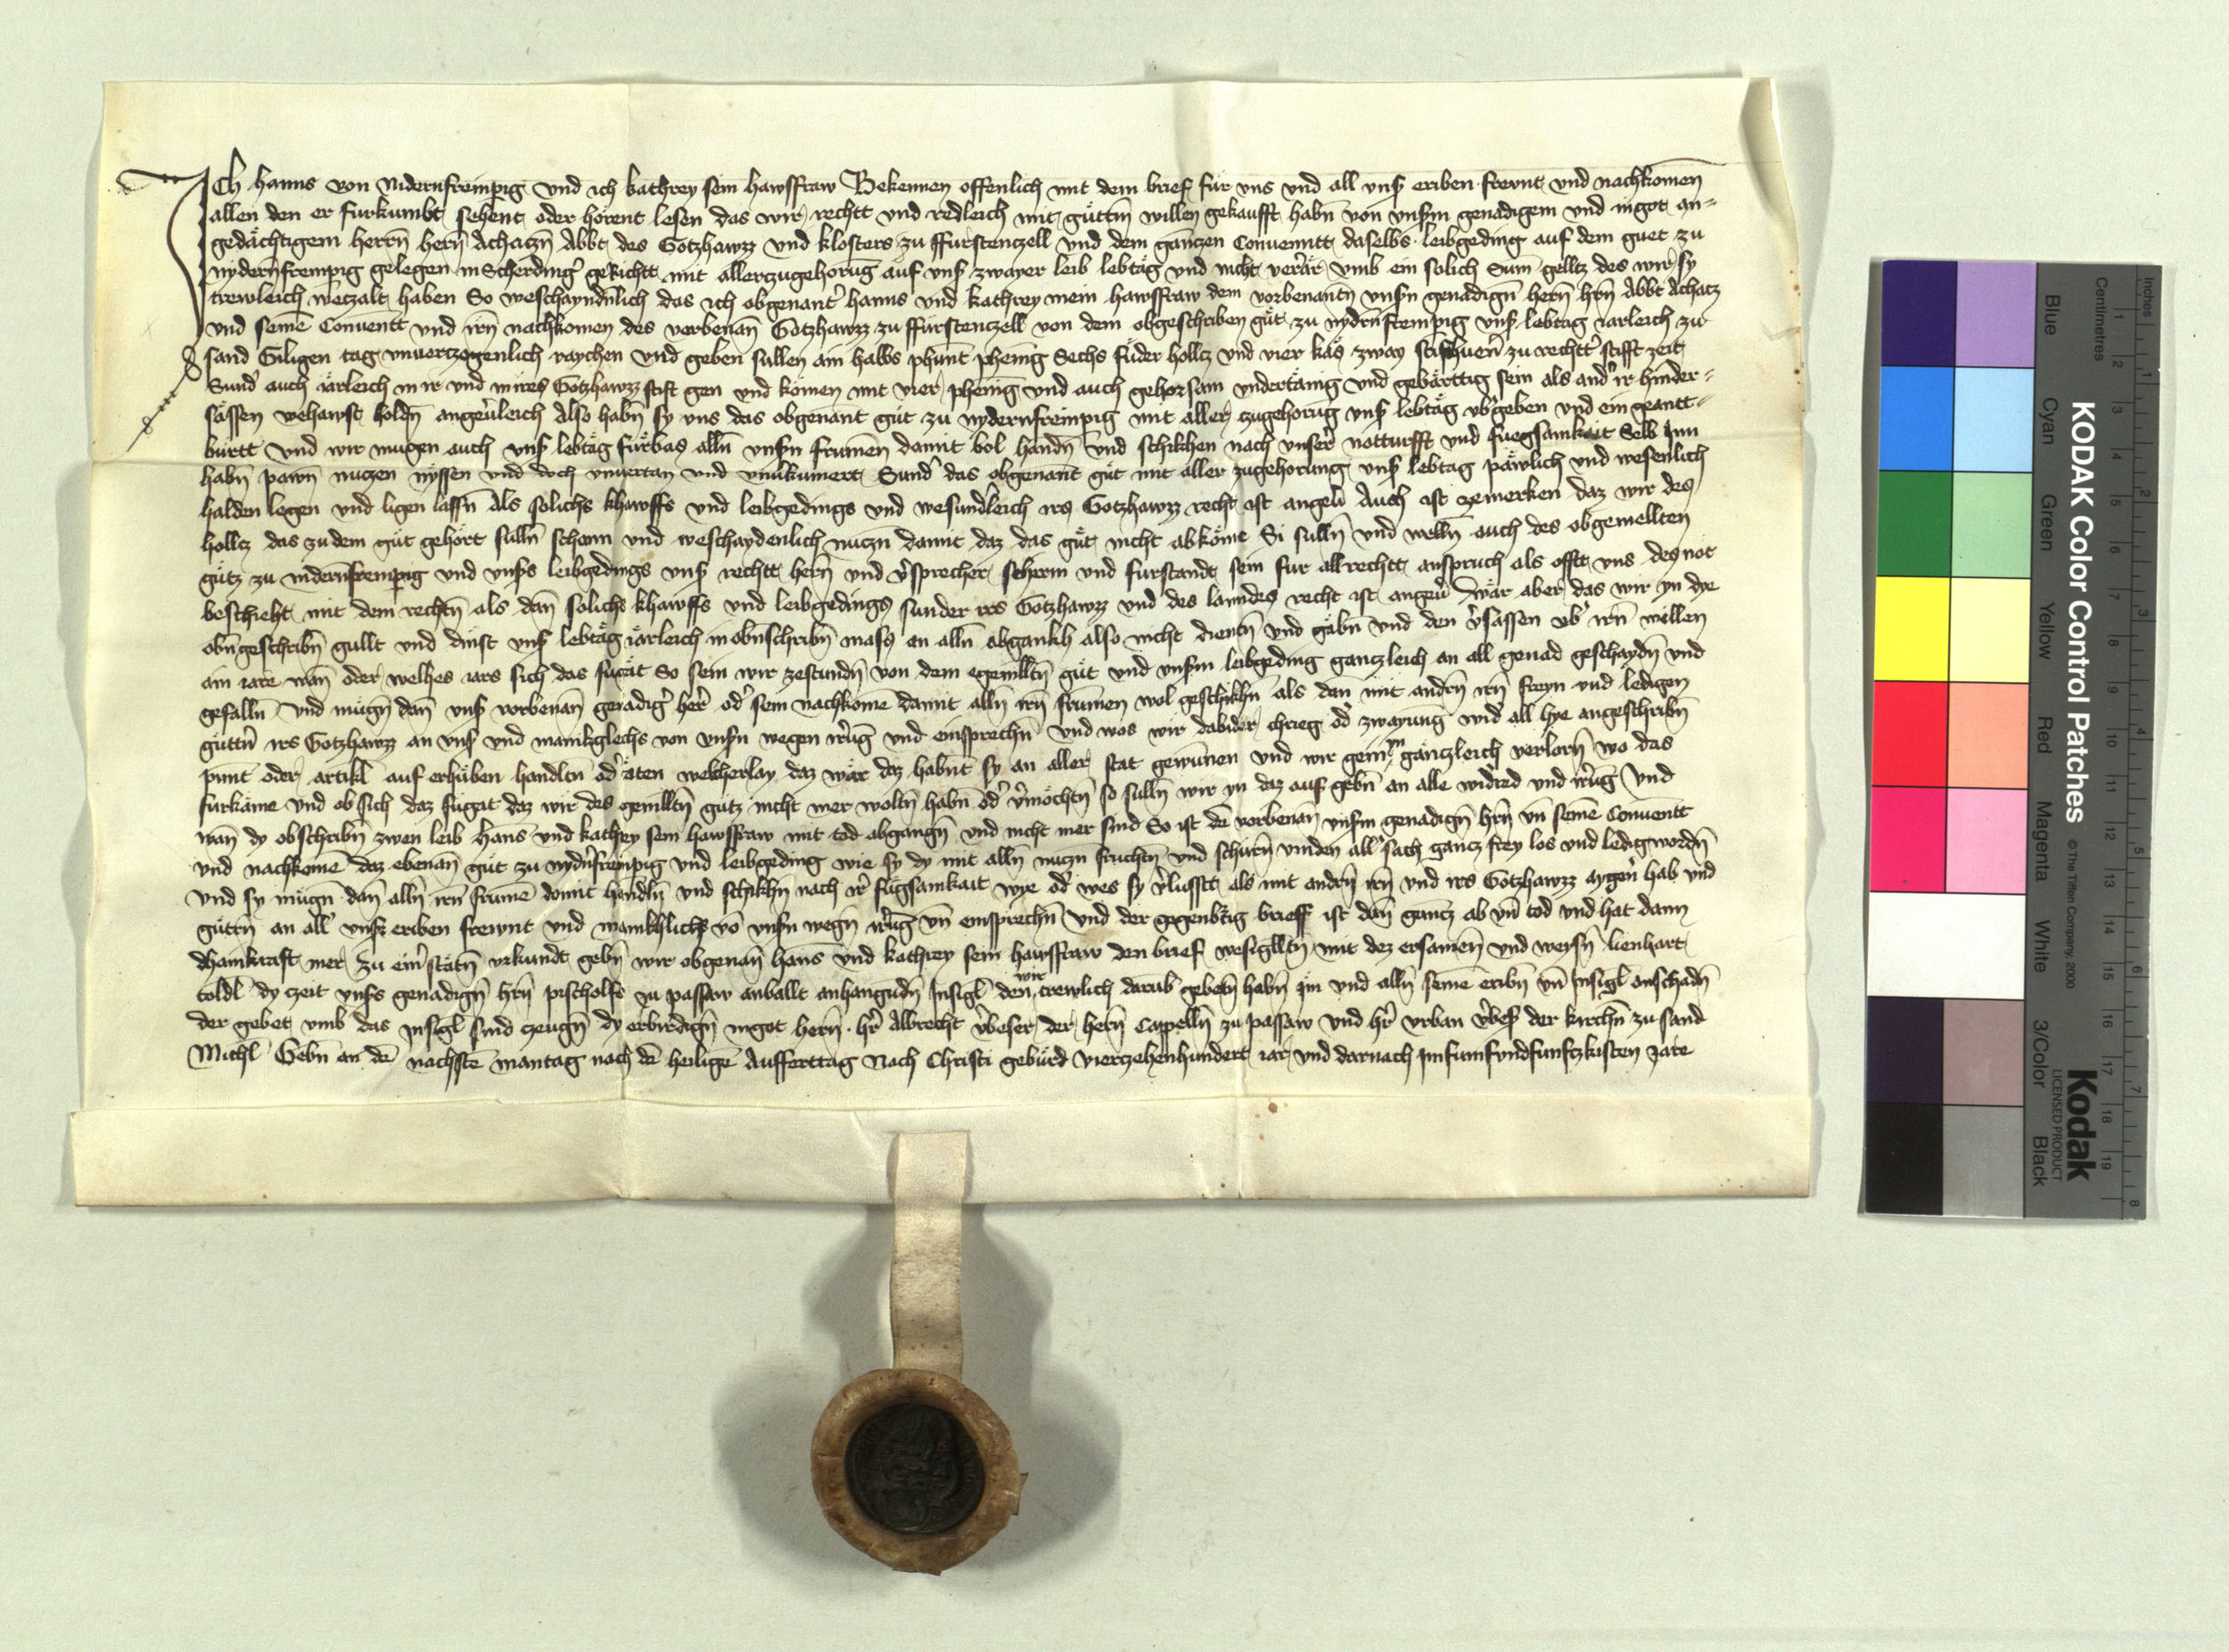 Ich hanns von Nidernfrempig und ich kathrey sein hawsfraw Bekennen offenlich mit dem brief für uns und all unß eriben frewnt und nachkomen
allen den er furkumbt sehent oder hörent lesen das wir rechtt und redleich mit güttm̄ willen gekaufft habn̄ von unsm̄ genadigem und in got an=
gedächtigem herrn̄ hern̄ Achaczn̄ Abbt des Gotzhawzz und klosters zu ffürstenczell und dem ganczen Convenntt daselbs leibgeding auf dem guet zu
nydern̄frempig gelegen in Scherdingˀ gerichtt mit allerczugehorūg auf unß zwayer leib lebtäg und nicht verrˀär umb ein solich Sum̄ gelltz des wir sy
trewleich weczalt haben So weschayndn̄lich das ich obgenantˀ hanns und kathrey mein hawsfraw dem vorbenantn̄ unsn̄ genadign̄ hern̄ hrn̄ Abbt Achacz
und seinē Conventt und irn̄ nachkomen des vorbenan̄ Gotzhawzz zu ffürstenczell von dem obgeschriben güt zu nydrn̄frempig unß lebtag iarleich zu
sand Giligen tag unverczogenlich raychen und geben sullen ain halbs phunt phening Sechs füder holtz und vier käs zway stifhuenˀ zu rechttˀ stifft zeit
Sundˀ auch iärleich in ir und in irēs Gotzhawzz stift gen und kömen mit vier phenīg und auch gehorsam undertänig und gebärttig sein als andˀ ir hinder=
sässen wehawst holdn̄ angevˀleich Also habn̄ sy uns das obgenant güt zu nydernfrempig mit aller zugehorūg unß lebtäg ubˀgeben und ein geantt=
burtt Und wir mugen auch unß lebtäg fürbas alln̄ unsn̄ frumen̄ damit bol handn̄ und schikhen nach unserˀ notturfft und fuegsamkait Selb Inn
habn̄ pawn̄ nuczen nyssen und doch unvertan und unūkumert Sundˀ das obgenant güt mit aller zugehorung unß lebtag päwlich und wesenlich
halden legen und ligen lassn̄ Als solichs khawffs und leibgedings und wesundleich irs Gotzhawzz recht ist angevˀ Auch ist zemerken daz wir des
holtz das zu dem güt gehört sulln̄ schonn und weschaydenlich nuczn̄ damit daz das güt nicht abköme Si sulln̄ und welln̄ auch des obgemellten
gütz zu nidern̄frempig und unsˀs leibgedings unß rechtt hern̄ und vˀsprecher scherm und furstandt sein fur all rechtt anspruch als offt uns des not
beschieht mit dem rechtn̄ als dan̄ solichs khawffs und leibgedings sunder irs Gotzhawzz und des lanndes recht ist angevˀ Wär aber das wir yn dye
obn̄geschribn̄ gullt und dinst unß lebtäg iärleich in obn̄schribn̄ mass an alln̄ abgankh also nicht dientn̄ und gäbn̄ und den vˀsassen ubˀ irn̄ willen
ain iare wan̄ oder welhes iars sich das fügät So sein wir zestundn̄ von dem egemelltn̄ güt und unsm̄ leibgeding ganczleich an all genad geschaydn̄ und
gefalln̄ und mügn̄ dan̄ unß vorbenan̄ genadigˀ herˀ odˀ sein nachkomē damit alln̄ irn̄ frumen wol geschikhn̄ als dan̄ mit andrn̄ irn̄ freyn und ledigen
güttrn̄ irs Gotzhawzz an unß und manikglechs von unsn̄ wegen irˀūg und einsprechn̄ Und wos wir dabider chrieg odˀ zwayung widˀ all hye angeschribn̄
punt oder artikl auf erhüben handltn̄ odˀ täten welcherlay daz wär daz habnt sy an aller stat gewunnen und wir gein ym ganczleich verlorn̄ wo das
furkäme Und ob sich daz fügat daz wir des egemelltn̄ gütz nicht mer woltn̄ habn̄ odˀ vˀmöchtn̄ so sulln̄ wir yn daz auf gebn̄ an alle widˀred und irˀūg Und
wan̄ dy obschribn̄ zwen leib hans und kathrey sein hawsfraw mit tod abgangn̄ und nicht mer sind So ist dē vorbenan̄ unsm̄ genadign̄ hrn̄ un̄ seinē Conventt
und nachkomē daz ebenan̄ güt zu nydnˀfrempig und leibgeding wie sy dy mit alln̄ nuczn̄ fruchtn̄ und schürn̄ vinden allˀ sach gancz frey los und ledig wordn̄
Und sy mügn̄ dan̄ alln̄ irn̄ frumē domit handln̄ und schikhn̄ nach irˀ fügsamkait wye odˀ wes sy vˀlusstt als mit andrn̄ irn̄ und irs Gotzhawzz aygenˀ hab und
güttrn̄ an allˀ unsˀ eriben frewnt und manikhlichs vō unsn̄ wegn̄ irˀūg un̄ einsprechn̄ Und der gegenbˀtig brieff ist dan̄ gancz ab un̄ tod und hat dann
dhainkraft mer Zu einˀ stätn̄ urkundt gebn̄ wir obgenan̄ hans und kathrey sein hawsfraw den brief wesiglltn̄ mit dez ersamen̄ und weysn̄ lienhart
toldl dy zeit unsˀs genadign̄ hrn̄ pischolfs zu passaw anballt anhangūdn̄ Insigl den wir trewlich darūb gebetn̄ habn̄ im und alln̄ seinē eribn̄ un̄ Insigl anschadn̄
der gebet umb das insigl sind zeugn̄ dy erbirdign̄ in got hern̄ hrˀ Albrecht vˀbeser der hern̄ Cappelln̄ zu passaw und hrˀ urban vˀbeß der kirchn̄ zu sand
Michl Gebn̄ an dē nachstē mantag nach dē heiligē Aufferttag Nach Christi gebürd vierczehenhundert iar und darnach im fumfundfunfczkisten Jare
KODAK Color Control Patches
© The Tiffen Company, 2000
Kodak
LICENSED PRODUCT
Blue
Cyan
Green
Yellow
Red
Magenta
White
3/Color
Black
Inches
1 2 3 4 5 6 7 8
Centimetres
1 2 3 4 5 6 7 8 9 10 11 12 13 14 15 16 17 18 19